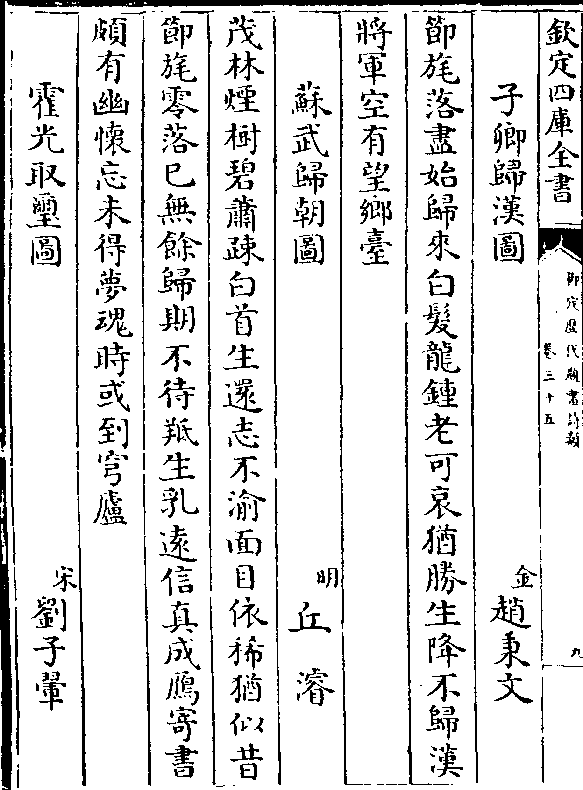 欽定四庫全書
御定歷代題畫詩類
卷三十五
九
子卿歸漢圖
金
趙秉文
節旄落盡始歸來白髮龍鍾老可哀猶勝生降不歸漢
將軍空有望鄉臺
蘇武歸朝圖
明
丘濬
茂林煙樹碧蕭踈白首生還志不渝面目依稀猶似昔
節旄零落已無餘歸期不待羝生乳遠信真成鴈寄書
頗有幽懷忘未得夢魂時或到穹廬
霍光取璽圖
宋
劉子翬